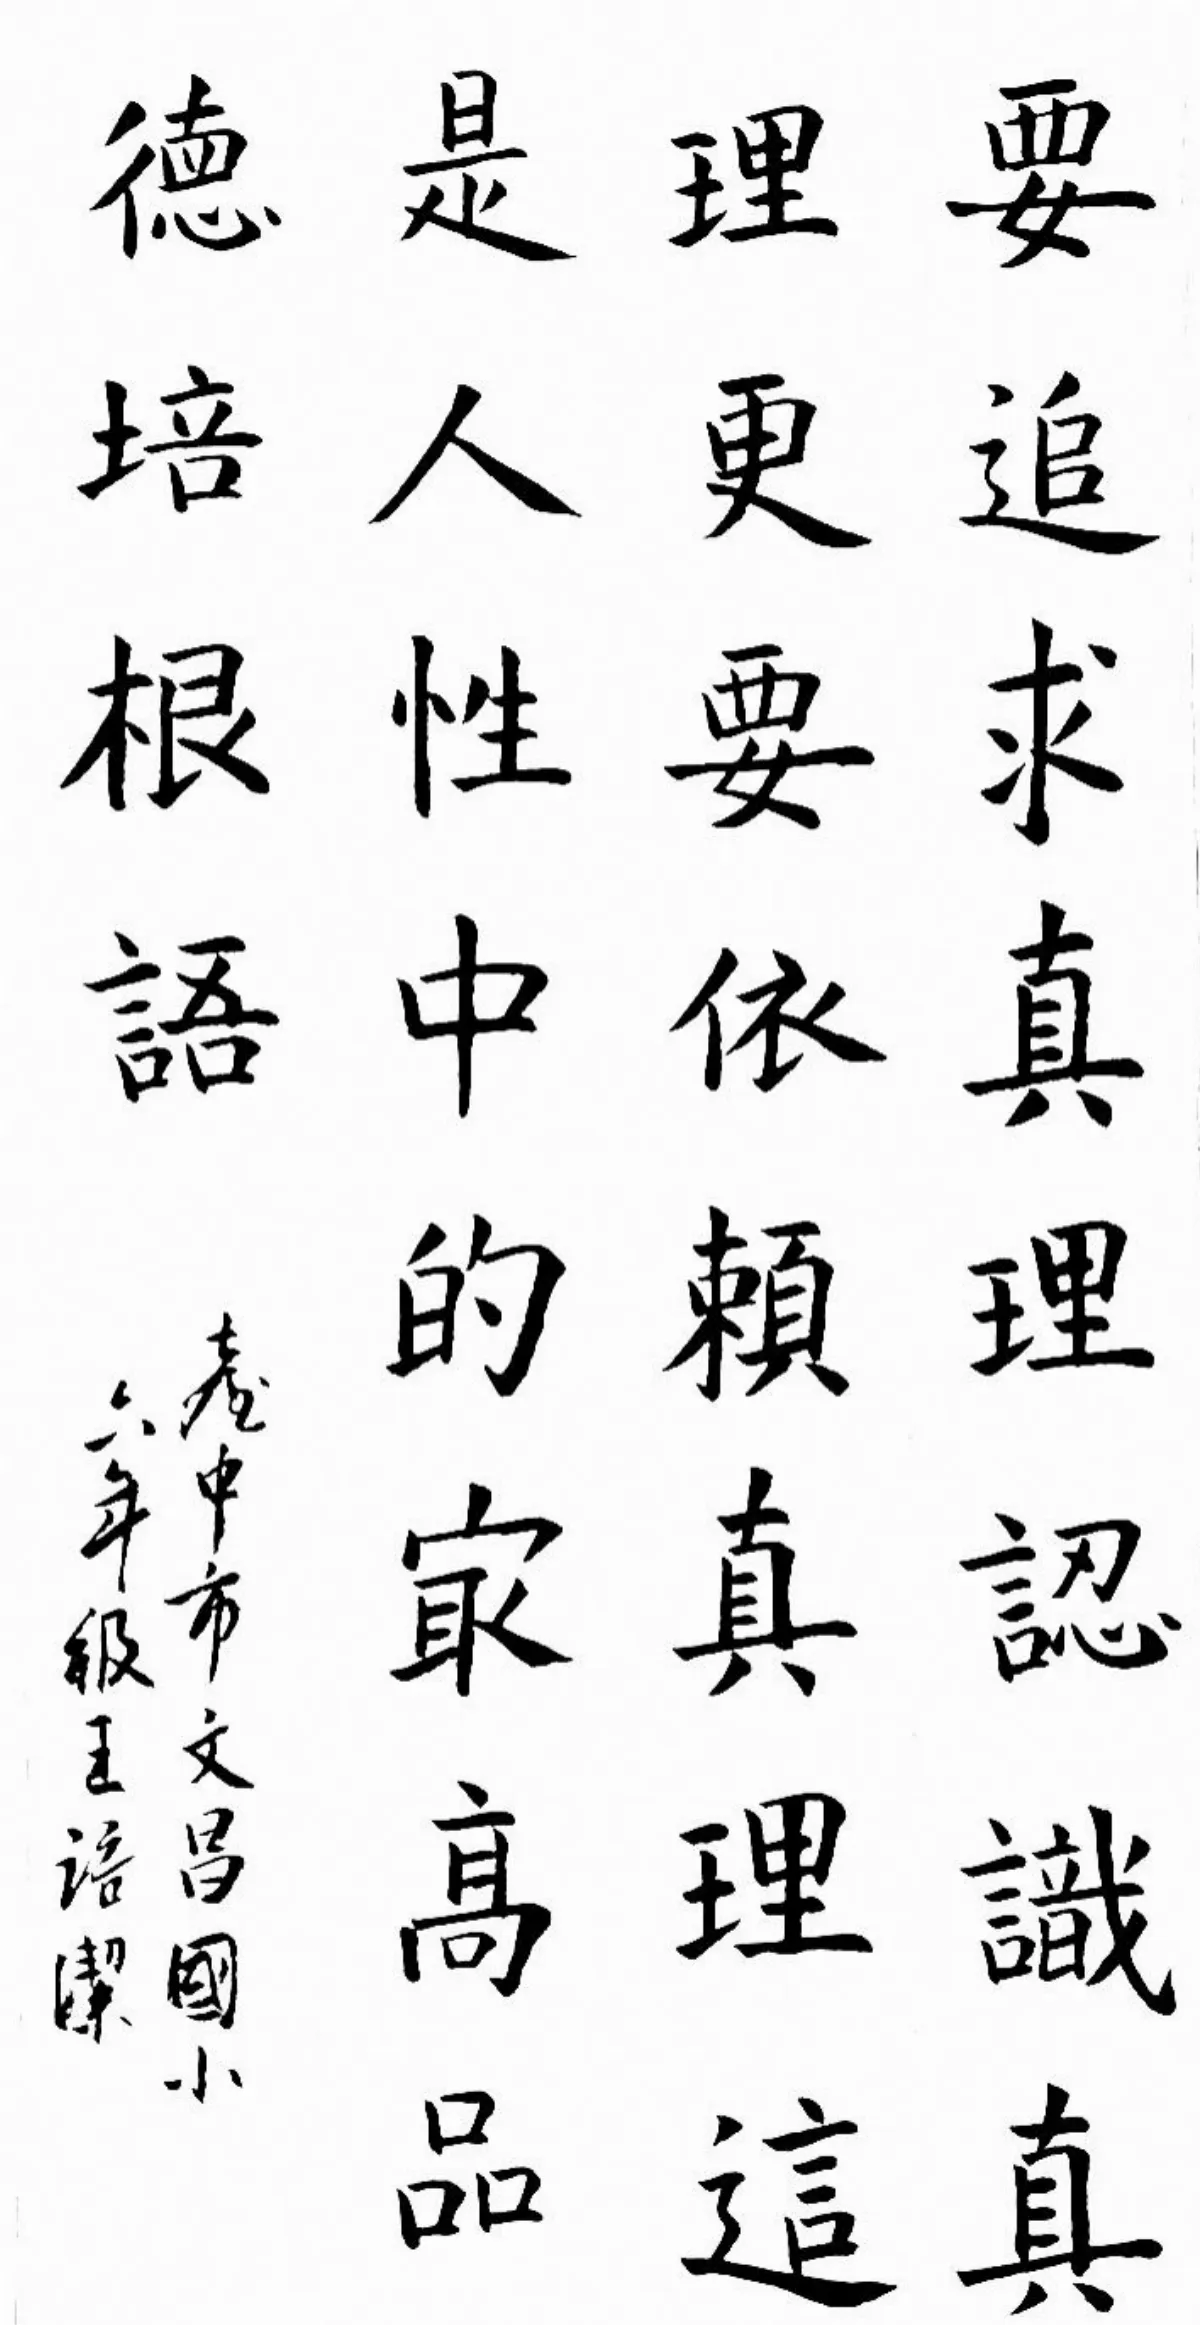 要追求真理認識真
理更要依賴真理這
是人性中的冣高品
德培根語
臺中市文昌國小
六年級王語潔